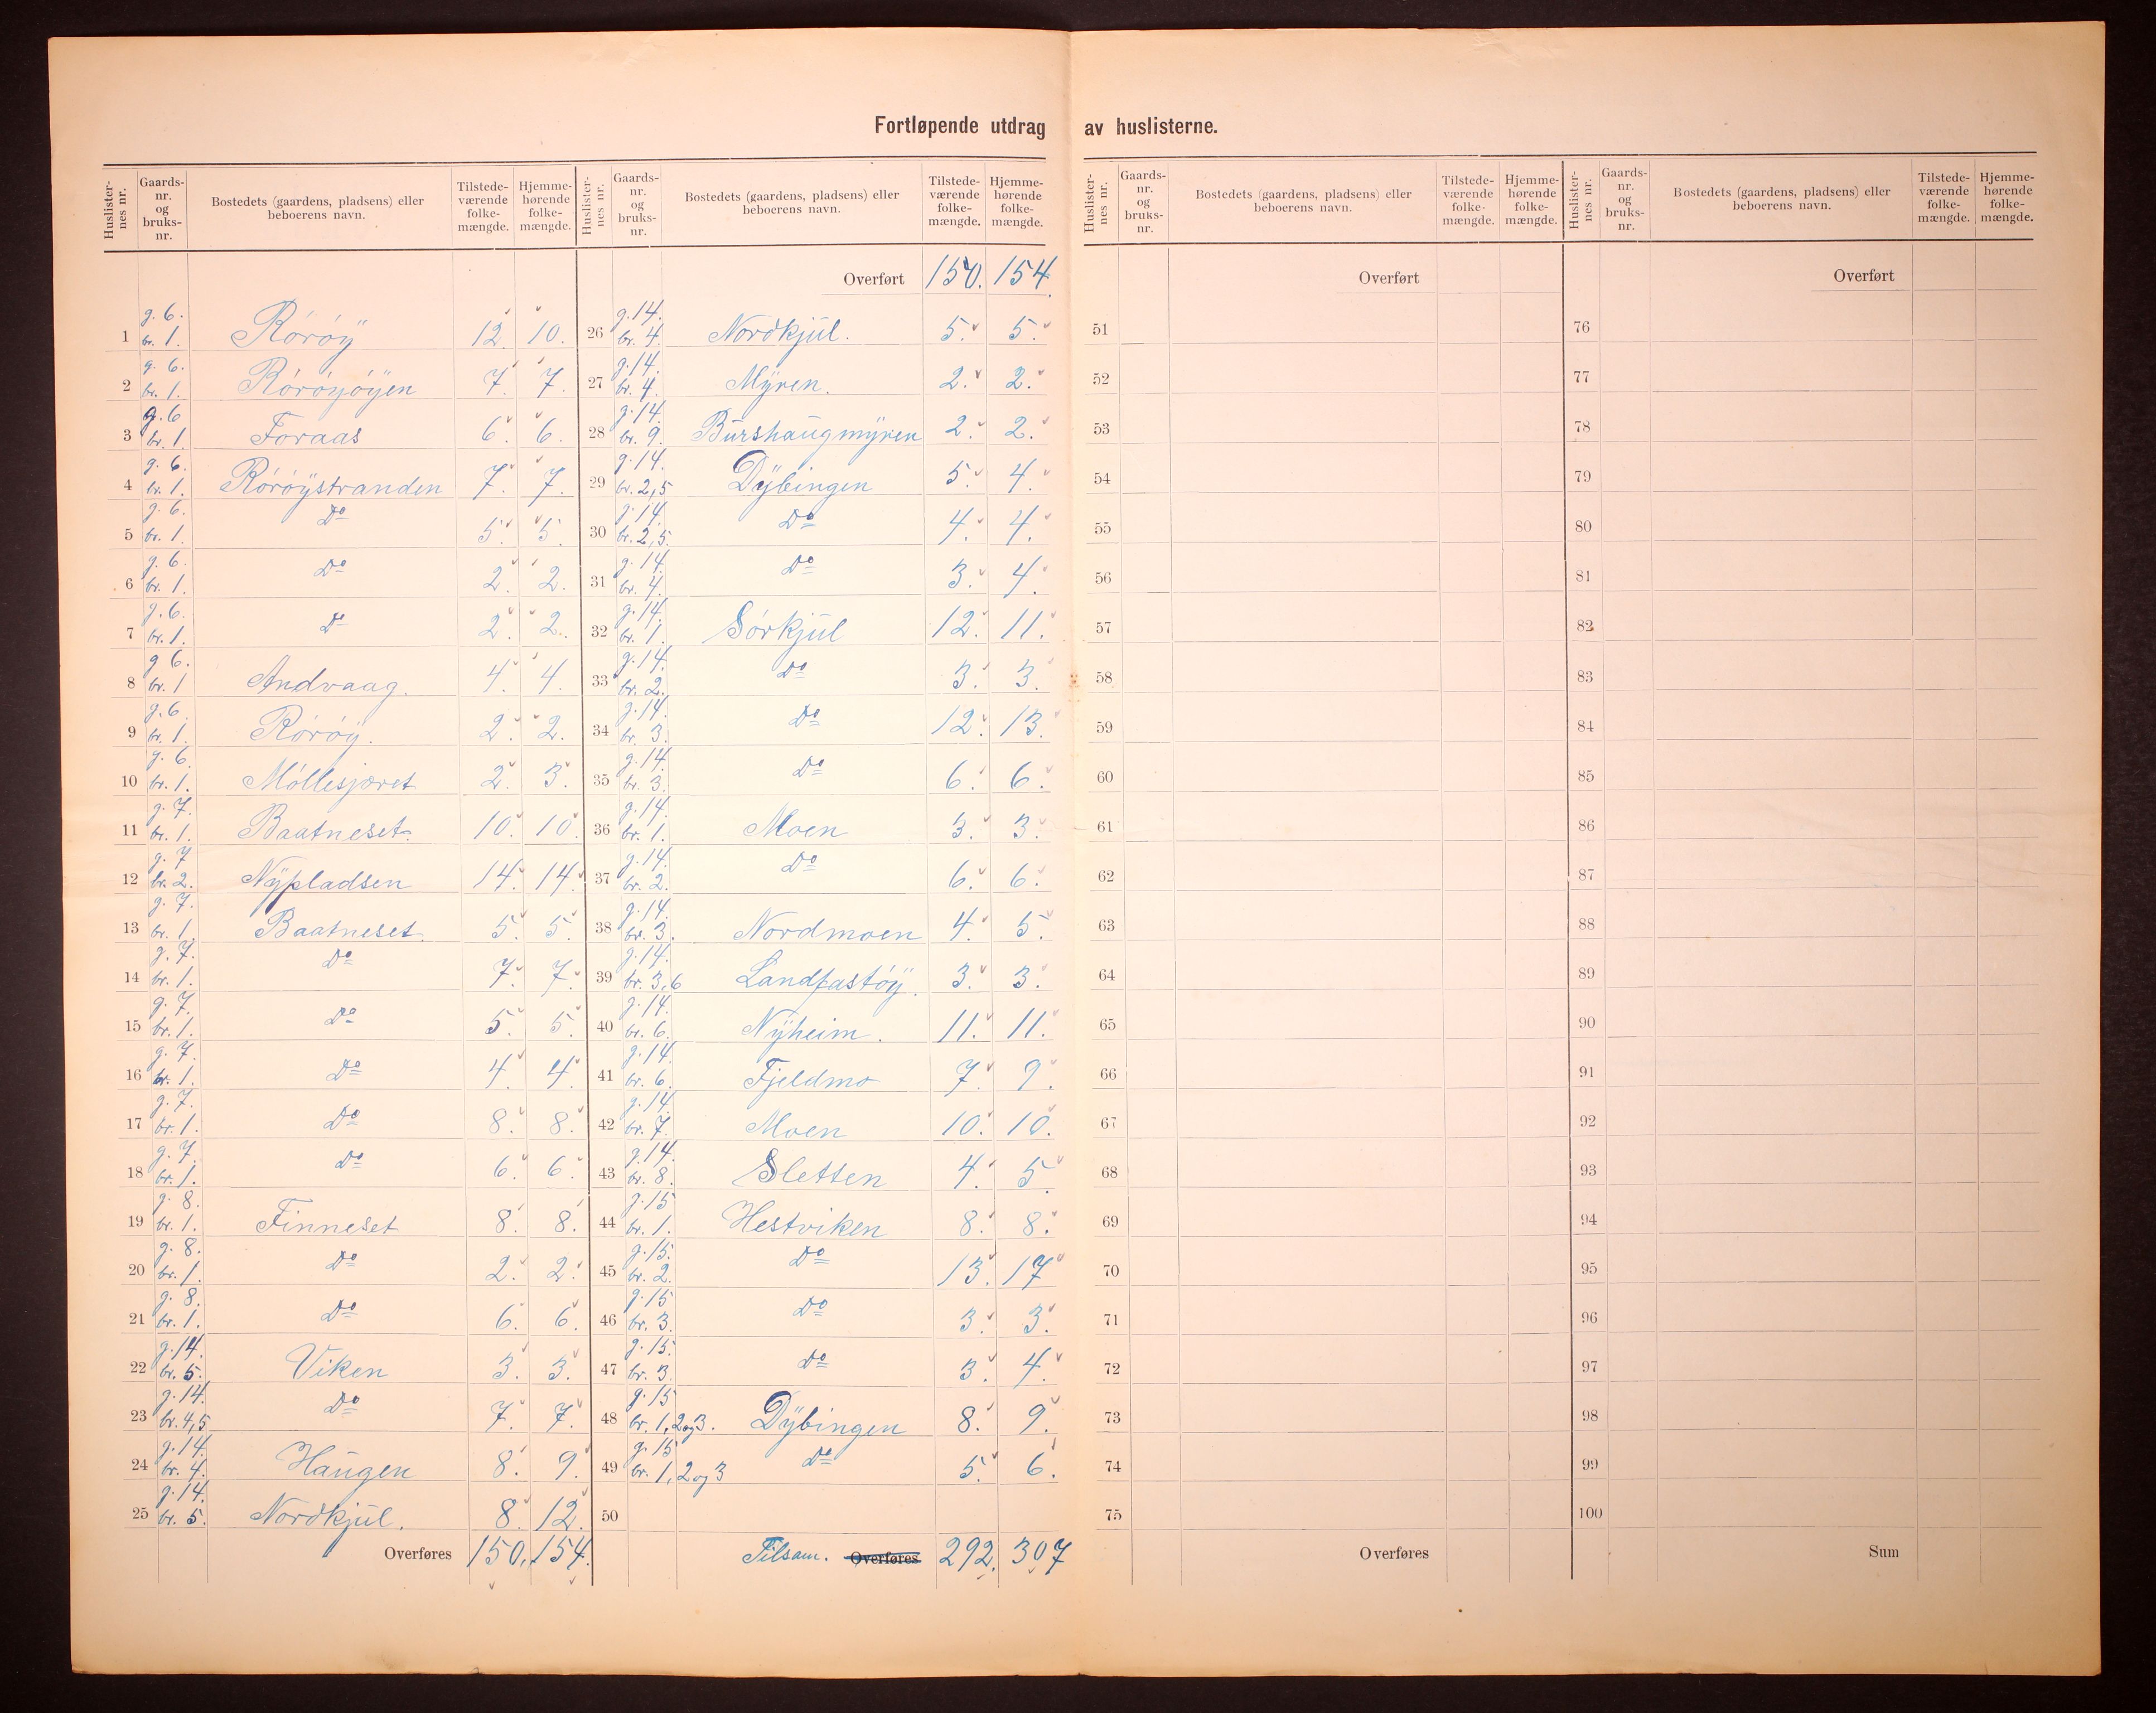 Fortløpende utdrag av huslisterne.
Huslister-nes nr. Gaards-nr. og bruks-nr. Bostedets (gaardens, pladsens) eller beboerens navn. Tilstede-værende folke-mængde. Hjemme-hørende folke-mængde.
1 g. 6. br. 1. Rørøy 12. 10.
2 g. 6. br. 1. Rørøyøyen 7. 7.
3 g. 6 br. 1. Foraas 6. 6.
4 g. 6. br. 1. Rørøystranden 7. 7.
5 g. 6. br. 1. Do 5. 5.
6 g. 6. br. 1. Do 2. 2.
7 g. 6. br. 1. Do 2. 2.
8 g 6. br. 1 Andvaag. 4. 4.
9 g. 6. br. 1. Rørøy. 2. 2.
10 g. 6. br. 1. Møllesjæret 2. 3.
11 g. 7. br. 1. Baatneset. 10. 10.
12 g. 7 br. 2. Nypladsen 14. 14.
13 g. 7. br. 1. Baatneset. 5. 5.
14 g. 7. br. 1. Do 7. 7.
15 g. 7. br. 1. Do 5. 5.
16 g. 7. br. 1. Do 4. 4.
17 g. 7. br. 1. Do 8. 8.
18 g. 7. br. 1. Do 6. 6.
19 g. 8. br. 1. Finneset 8. 8.
20 g. 8. br. 1. Do 2. 2.
21 g. 8. br. 1. Do 6. 6.
22 g. 14. br. 5. Viken 3. 3.
23 g. 14. br. 4,5 Do 7. 7.
24 g. 14. br. 4. Haugen 8. 9.
25 g. 14. br. 5. Nordkjul. 8. 12.
Overføres 150. 154.
Huslister-nes nr. Gaards-nr. og bruks-nr. Bostedets (gaardens, pladsens) eller beboerens navn. Tilstede-værende folke-mængde. Hjemme-hørende folke-mængde.
Overført 150. 154.
26 g. 14. br. 4. Nordkjul. 5. 5.
27 g. 14. br. 4. Myren. 2. 2.
28 g. 14. br. 9. Burshaugmyren 2. 2.
29 g. 14. br. 2,5 Dybingen 5. 4.
30 g. 14. br. 2,5. Do 4. 4.
31 g. 14. br. 4. Do 3. 4.
32 g. 14. br. 1. Sørkjul 12. 11.
33 g. 14. br. 2. Do 3. 3.
34 g. 14. br. 3. Do 12. 13.
35 g. 14. br. 3. Do 6. 6.
36 g. 14. br. 1. Moen 3. 3.
37 g. 14. br. 2. Do 6. 6.
38 g. 14. br. 3. Nordmoen 4. 5.
39 g. 14. br. 3,6 Landfastøy. 3. 3.
40 g. 14. br. 6. Nyheim. 11. 11.
41 g. 14. br. 6. Fjeldmo 7. 9.
42 g. 14. br. 7. Moen 10. 10.
43 g. 14. br. 8. Sletten 4. 5.
44 g. 15 br. 1. Hestviken 8. 8.
45 g. 15. br. 2. Do 13. 17
46 g. 15 br. 3. Do 3. 3.
47 g. 15. br. 3. Do 3. 4.
48 g. 15 br. 1, 2 og 3. Dybingen 8. 9.
49 g. 15 br. 1, 2 og 3 Do 5. 6.
50
Tilsam. Overføres 292. 307
Huslister-nes nr. Gaards-nr. og bruks-nr. Bostedets (gaardens, pladsens) eller beboerens navn. Tilstede-værende folke-mængde. Hjemme-hørende folke-mængde.
Overført
51
52
53
54
55
56
57
58
59
60
61
62
63
64
65
66
67
68
69
70
71
72
73
74
75
Overføres
Huslister-nes nr. Gaards-nr. og bruks-nr. Bostedets (gaardens, pladsens) eller beboerens navn. Tilstede-værende folke-mængde. Hjemme-hørende folke-mængde.
Overført
76
77
78
79
80
81
82
83
84
85
86
87
88
89
90
91
92
93
94
95
96
97
98
99
100
Sum